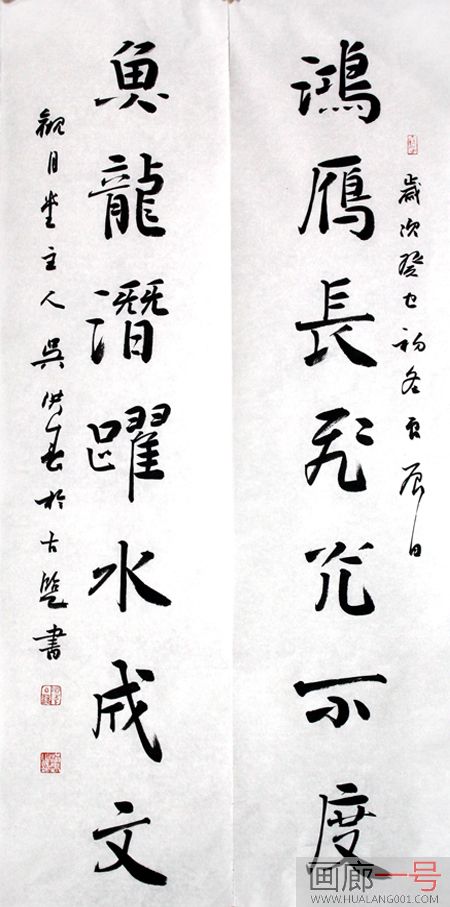 歲次癸巳初冬辰日
鴻鴈長飛光不度
魚龍潛躍水成文
觀月堂主人吳洪春於古鹽書
画廊一号
WWW.HUALANG001.COM